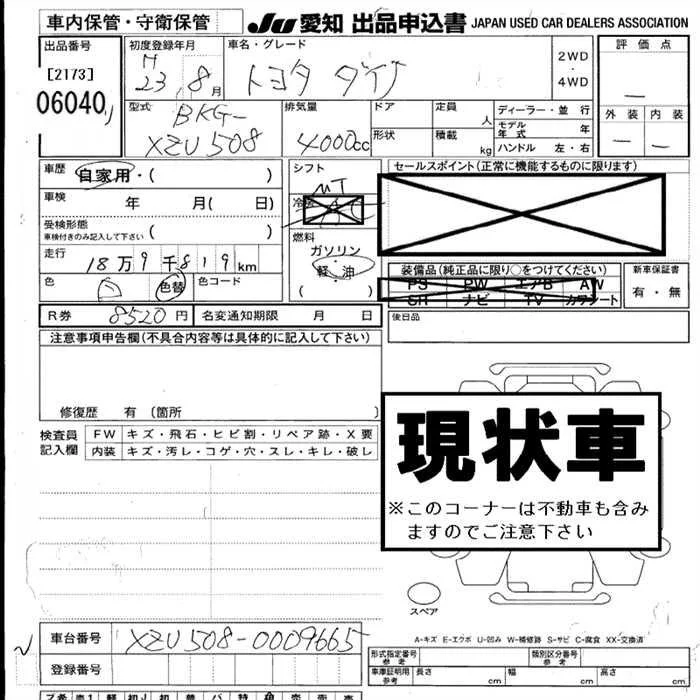 車内保管・守衛保管
JU 愛知 出品申込書 JAPAN USED CAR DEALERS ASSOCIATION
出品番号
[2173]
06040
初度登録年月
H
23 8月
車名・グレード
トヨタ ダイナ
2WD
・
4WD
評価点
外装 内装
型式
BKG-
XZU508
排気量
4000cc
ドア
形状
定員
人
積載
kg
ディーラー・並行
モデル年式 年
ハンドル 左・右
車歴
自家用・( )
車検 年 月( 日)
受検形態
車検付きのみ記入して下さい ( )
走行
18万9千819km
色
色替
色コード
シフト
MT
燃料
ガソリン
軽油
( )
セールスポイント(正常に機能するものに限ります)
装備品(純正品に限り○をつけてください)
PS PW エアB AW
SH ナビ TV カワシート
新車保証書
有・無
R券 8520円
名変通知期限 月 日
後日品
注意事項申告欄(不具合内容等は具体的に記入して下さい)
修復歴 有 〔箇所 〕
検査員
記入欄
FW キズ・飛石・ヒビ割・リペア跡・X要
内装 キズ・汚レ・コゲ・穴・スレ・キレ・破レ
現状車
※このコーナーは不動車も含み
ますのでご注意下さい
スペア
A-キズ E-エクボ U-凹み W-補修跡 S-サビ C-腐食 XX-交換済
車台番号 XZU508-0009665
登録番号
形式指定番号
参考
類別区分番号
参考
車庫証明用
参考
長さ cm
幅 cm
高さ cm